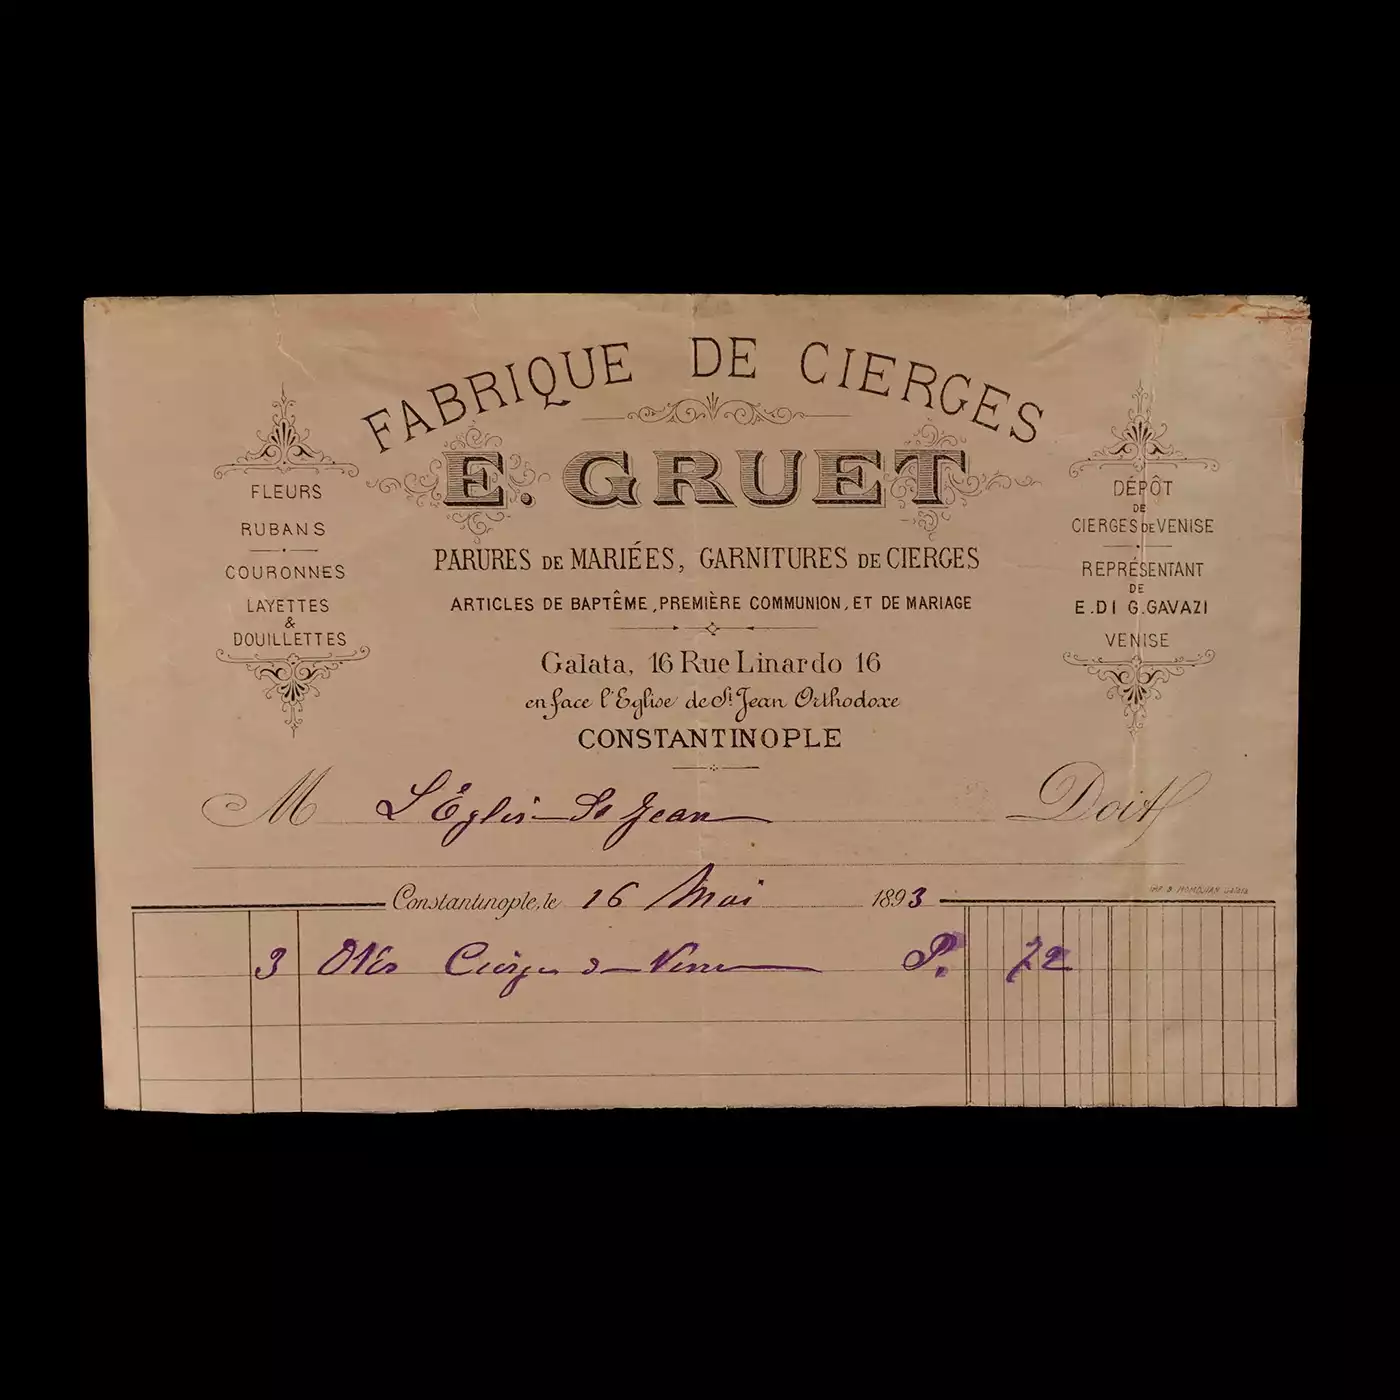 FABRIQUE DE CIERGES
E. GRUET
PARURES DE MARIÉES, GARNITURES DE CIERGES
ARTICLES DE BAPTÊME, PREMIÈRE COMMUNION, ET DE MARIAGE
Galata, 16 Rue Linardo 16
en face l'Eglise de St Jean Orthodoxe
CONSTANTINOPLE
FLEURS
RUBANS
COURONNES
LAYETTES
&
DOUILLETTES
DÉPÔT
DE
CIERGES DE VENISE
REPRÉSENTANT
DE
E. DI G. GAVAZI
VENISE
M L'Église St Jean Doit
Constantinople, le 16 Mai 1893
3 Cierges de Venise P. 72